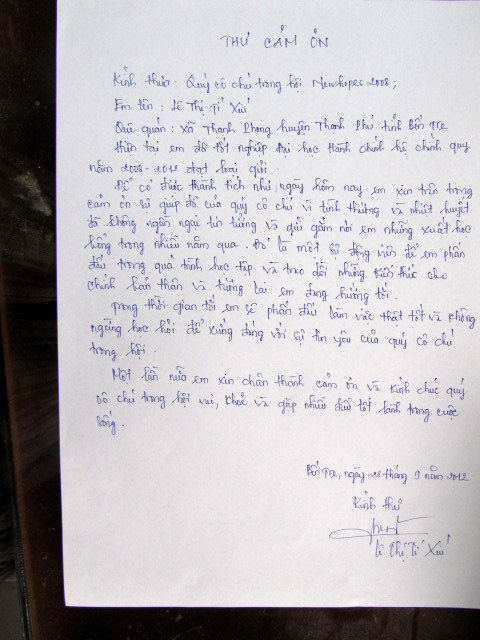 THƯ CẢM ƠN
Kính thưa: Quý cô chú trong hội Newhopes 2008;
Em tên: Lê Thị Tí Xíu
Quê quán: xã Thạnh Phong huyện Thạnh Phú tỉnh Bến Tre
Hiện tại em đã tốt nghiệp Đại học Hành chính hệ chính quy
năm 2008-2012 đạt loại giỏi.
Để có được thành tích như ngày hôm nay em xin trân trọng
cảm ơn sự giúp đỡ của quý cô chú vì tình thương và nhiệt huyết
đã không ngần ngại tin tưởng và gửi gắm nơi em những xuất học
bổng trong nhiều năm qua. Đó là một sự động viên để em phấn
đấu trong quá trình học tập và trao dồi những kiến thức cho
chính bản thân và tương lai em đang hướng tới.
Trong thời gian tới em sẽ phấn đấu làm việc thật tốt và không
ngừng học hỏi để xứng đáng với sự tin yêu của quý cô chú
trong hội.
Một lần nữa em xin chân thành cảm ơn và kính chúc quý
cô chú trong hội vui, khoẻ và gặp nhiều điều tốt lành trong cuộc
sống.
Bến Tre, ngày 22 tháng 9 năm 2012
Kính thư
Lê Thị Tí Xíu